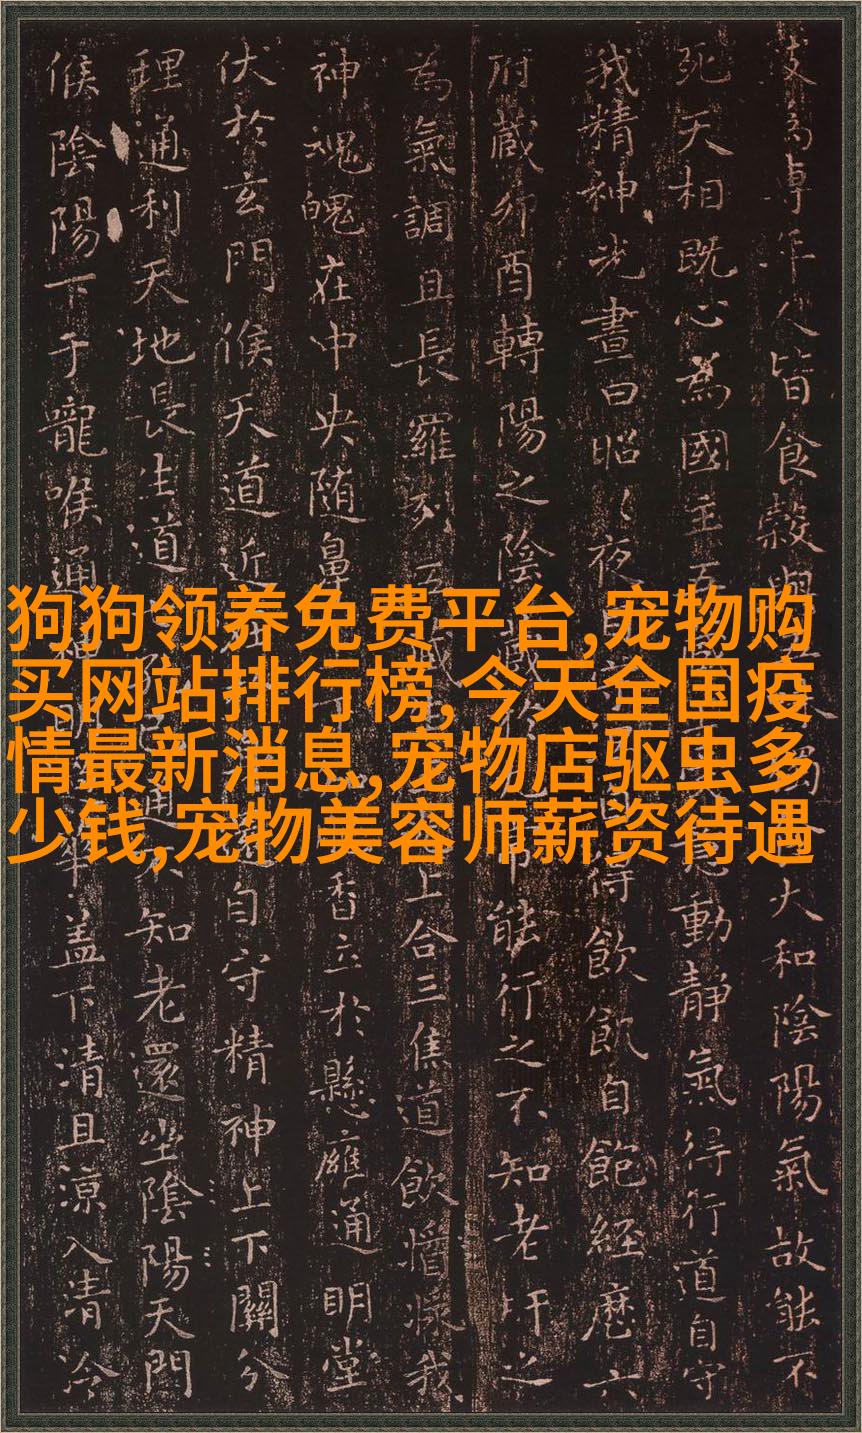 狗狗领养免费平台,宠物购
买网站排行榜,今天全国疫
情最新消息,宠物店驱虫多
少钱,宠物美容师薪资待遇
年人皆食穀與大和陰陽氣故能不
死天相既心為國主五動靜氣得行道自守
我精神光晝日昭〻夜得飲飢自飽經歷六
府藏卯酉轉陽之陰能行之不知老肝之
為氣調且長羅列五上合三焦道飲醬漿我
神魂魄在中央随鼻香立於懸廱通明堂
伏於玄門候天道近自守精神上下關分
理通利天地長生道知老還坐陰陽天門
候陰陽下于嚨喉通蓋下清且涼入清冷